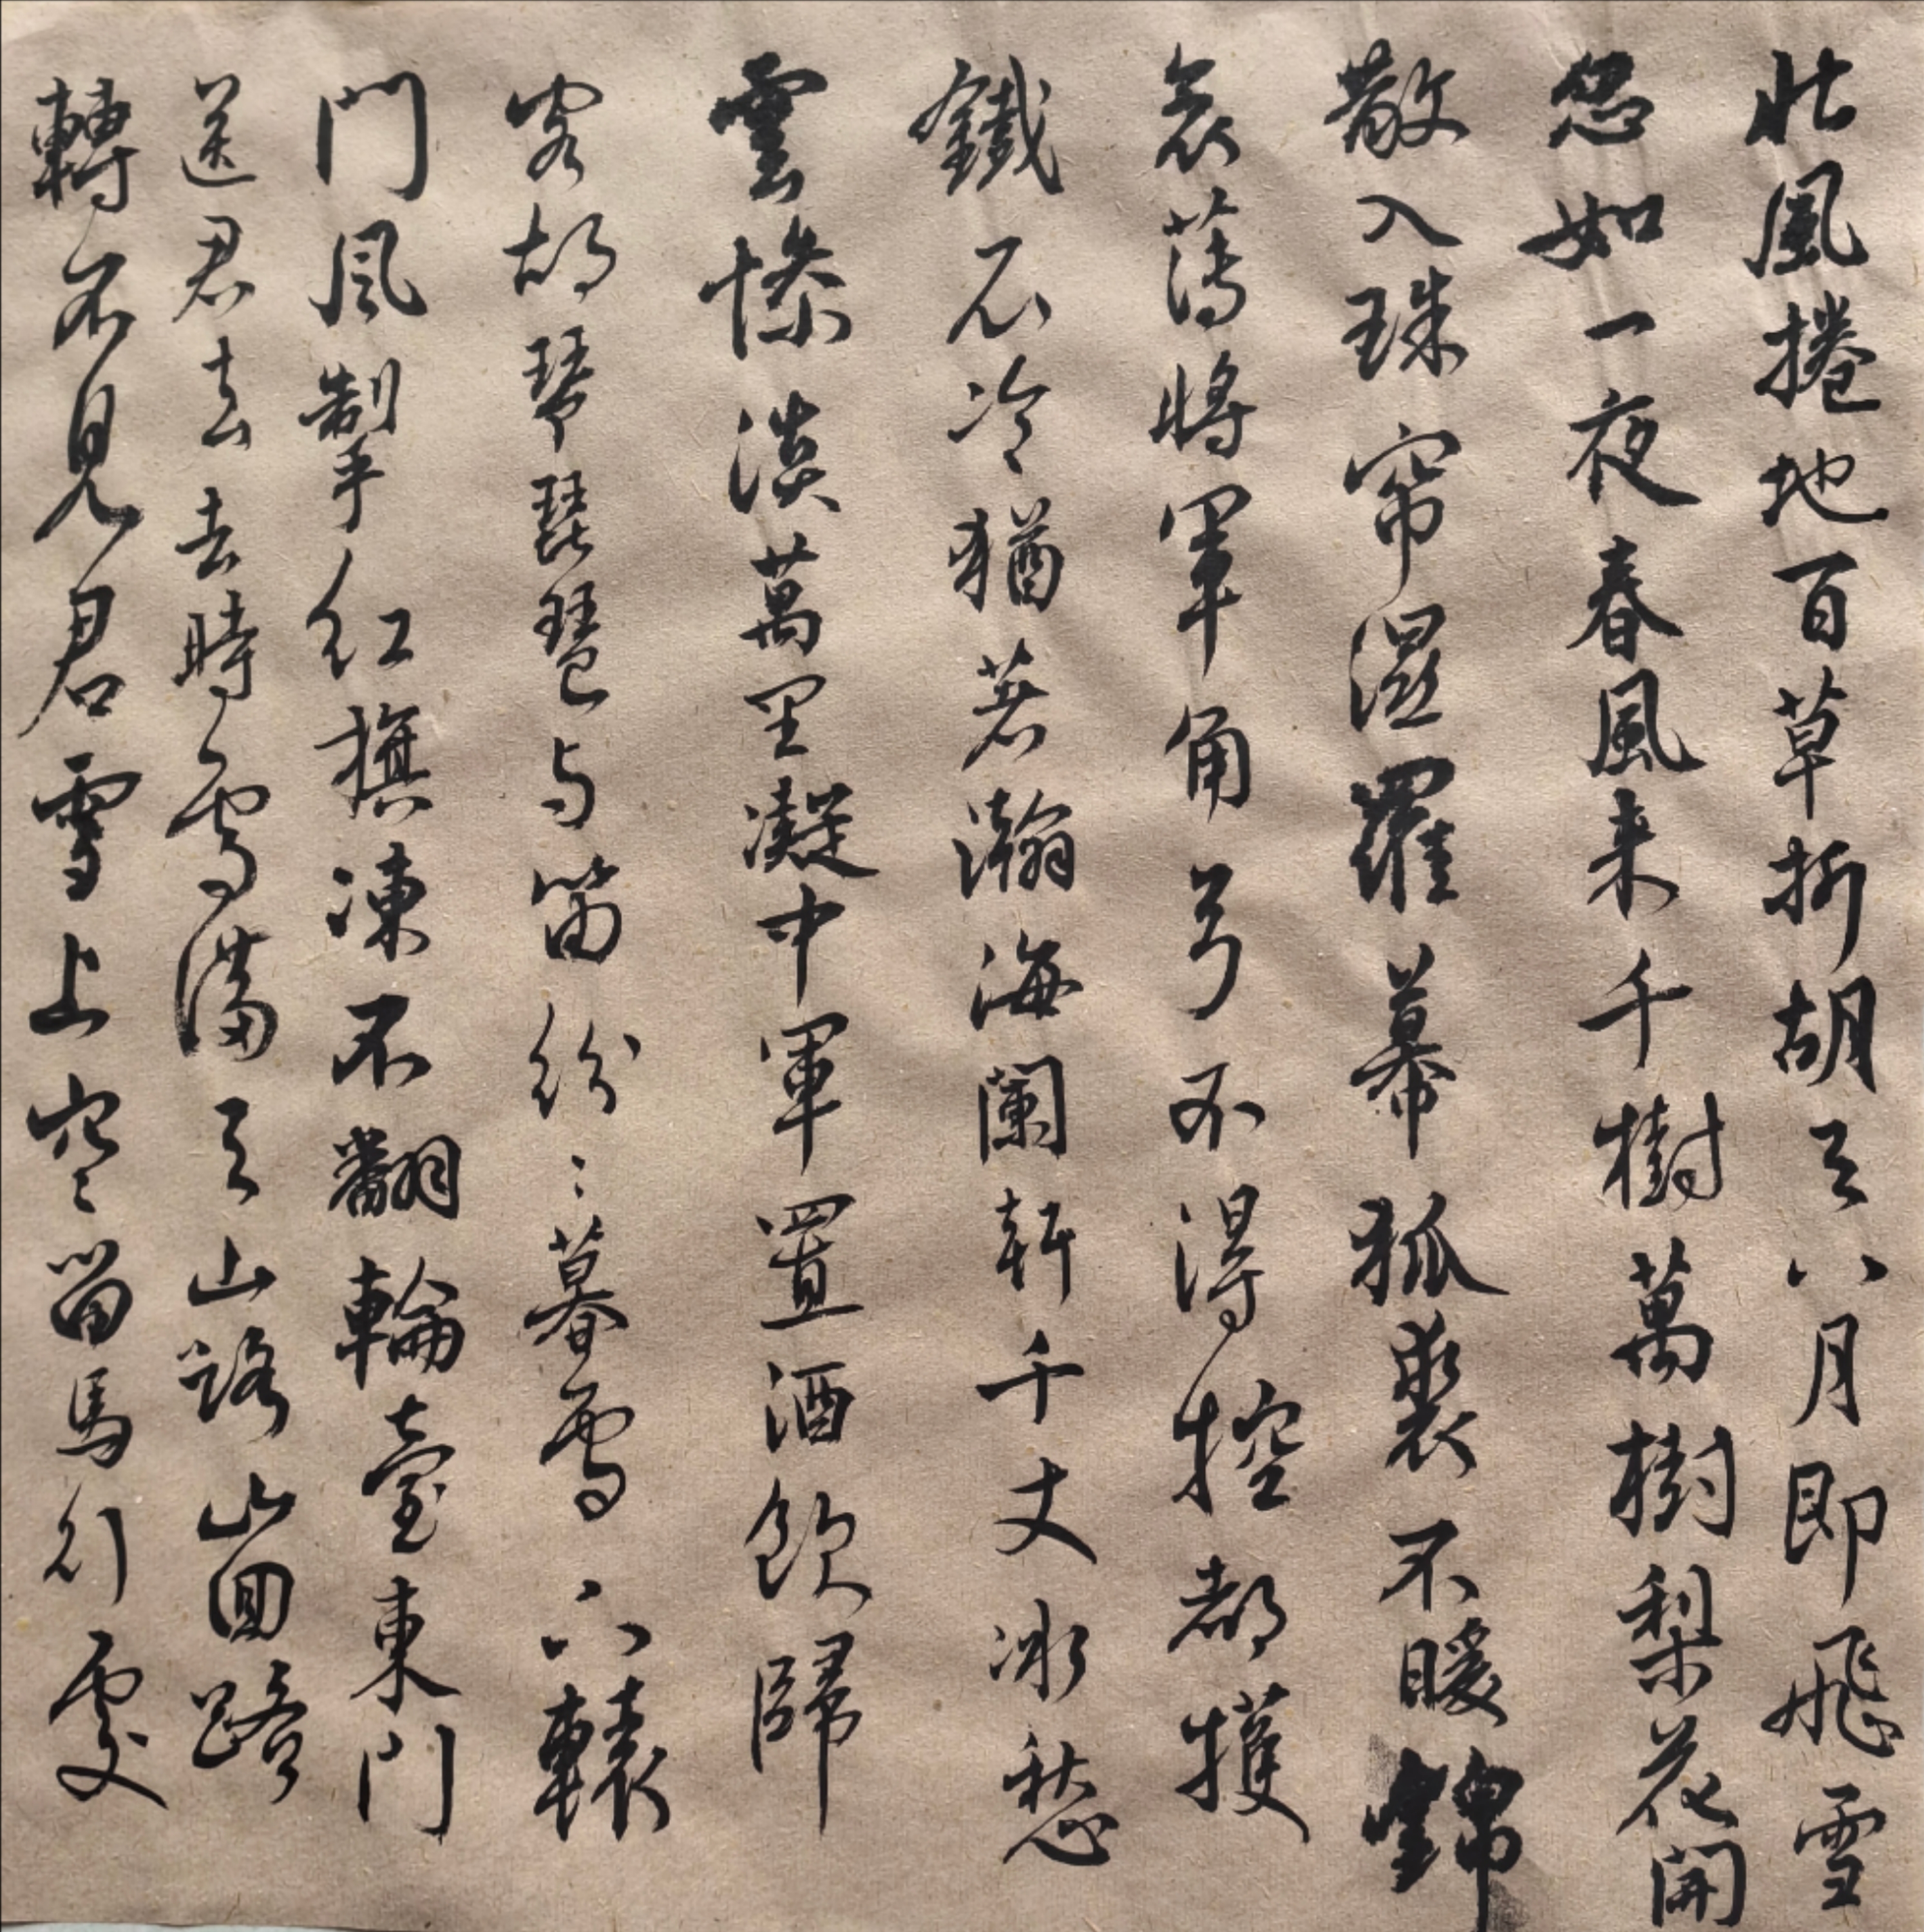 北風捲地百草折胡天八月即飛雪
忽如一夜春風来千樹萬樹梨花開
散入珠帘濕羅幕狐裘不暖錦
衾薄將軍角弓不得控都護
鐵衣冷猶著瀚海闌干千丈冰愁
雲慘淡萬里凝中軍置酒飲歸
客胡琴琵琶与笛紛〻暮雪下轅
門風掣紅旗凍不翻輪臺東門
送君去去時雪滿天山路山回路
轉不見君雪上空〻留馬行處